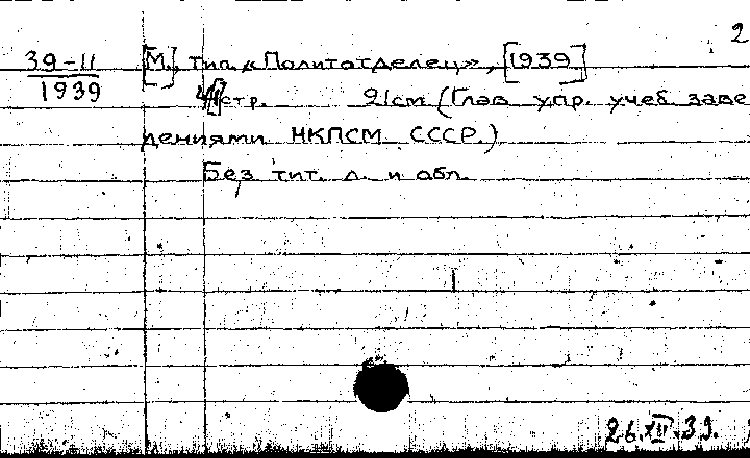 2
39-11
1939
[М.], тип. «Политотделец», [1939]
стр. 21см (Глав. упр. учеб. заве
дениями НКПСМ СССР.)
Без тит. л. и обл.
26.XII.39.